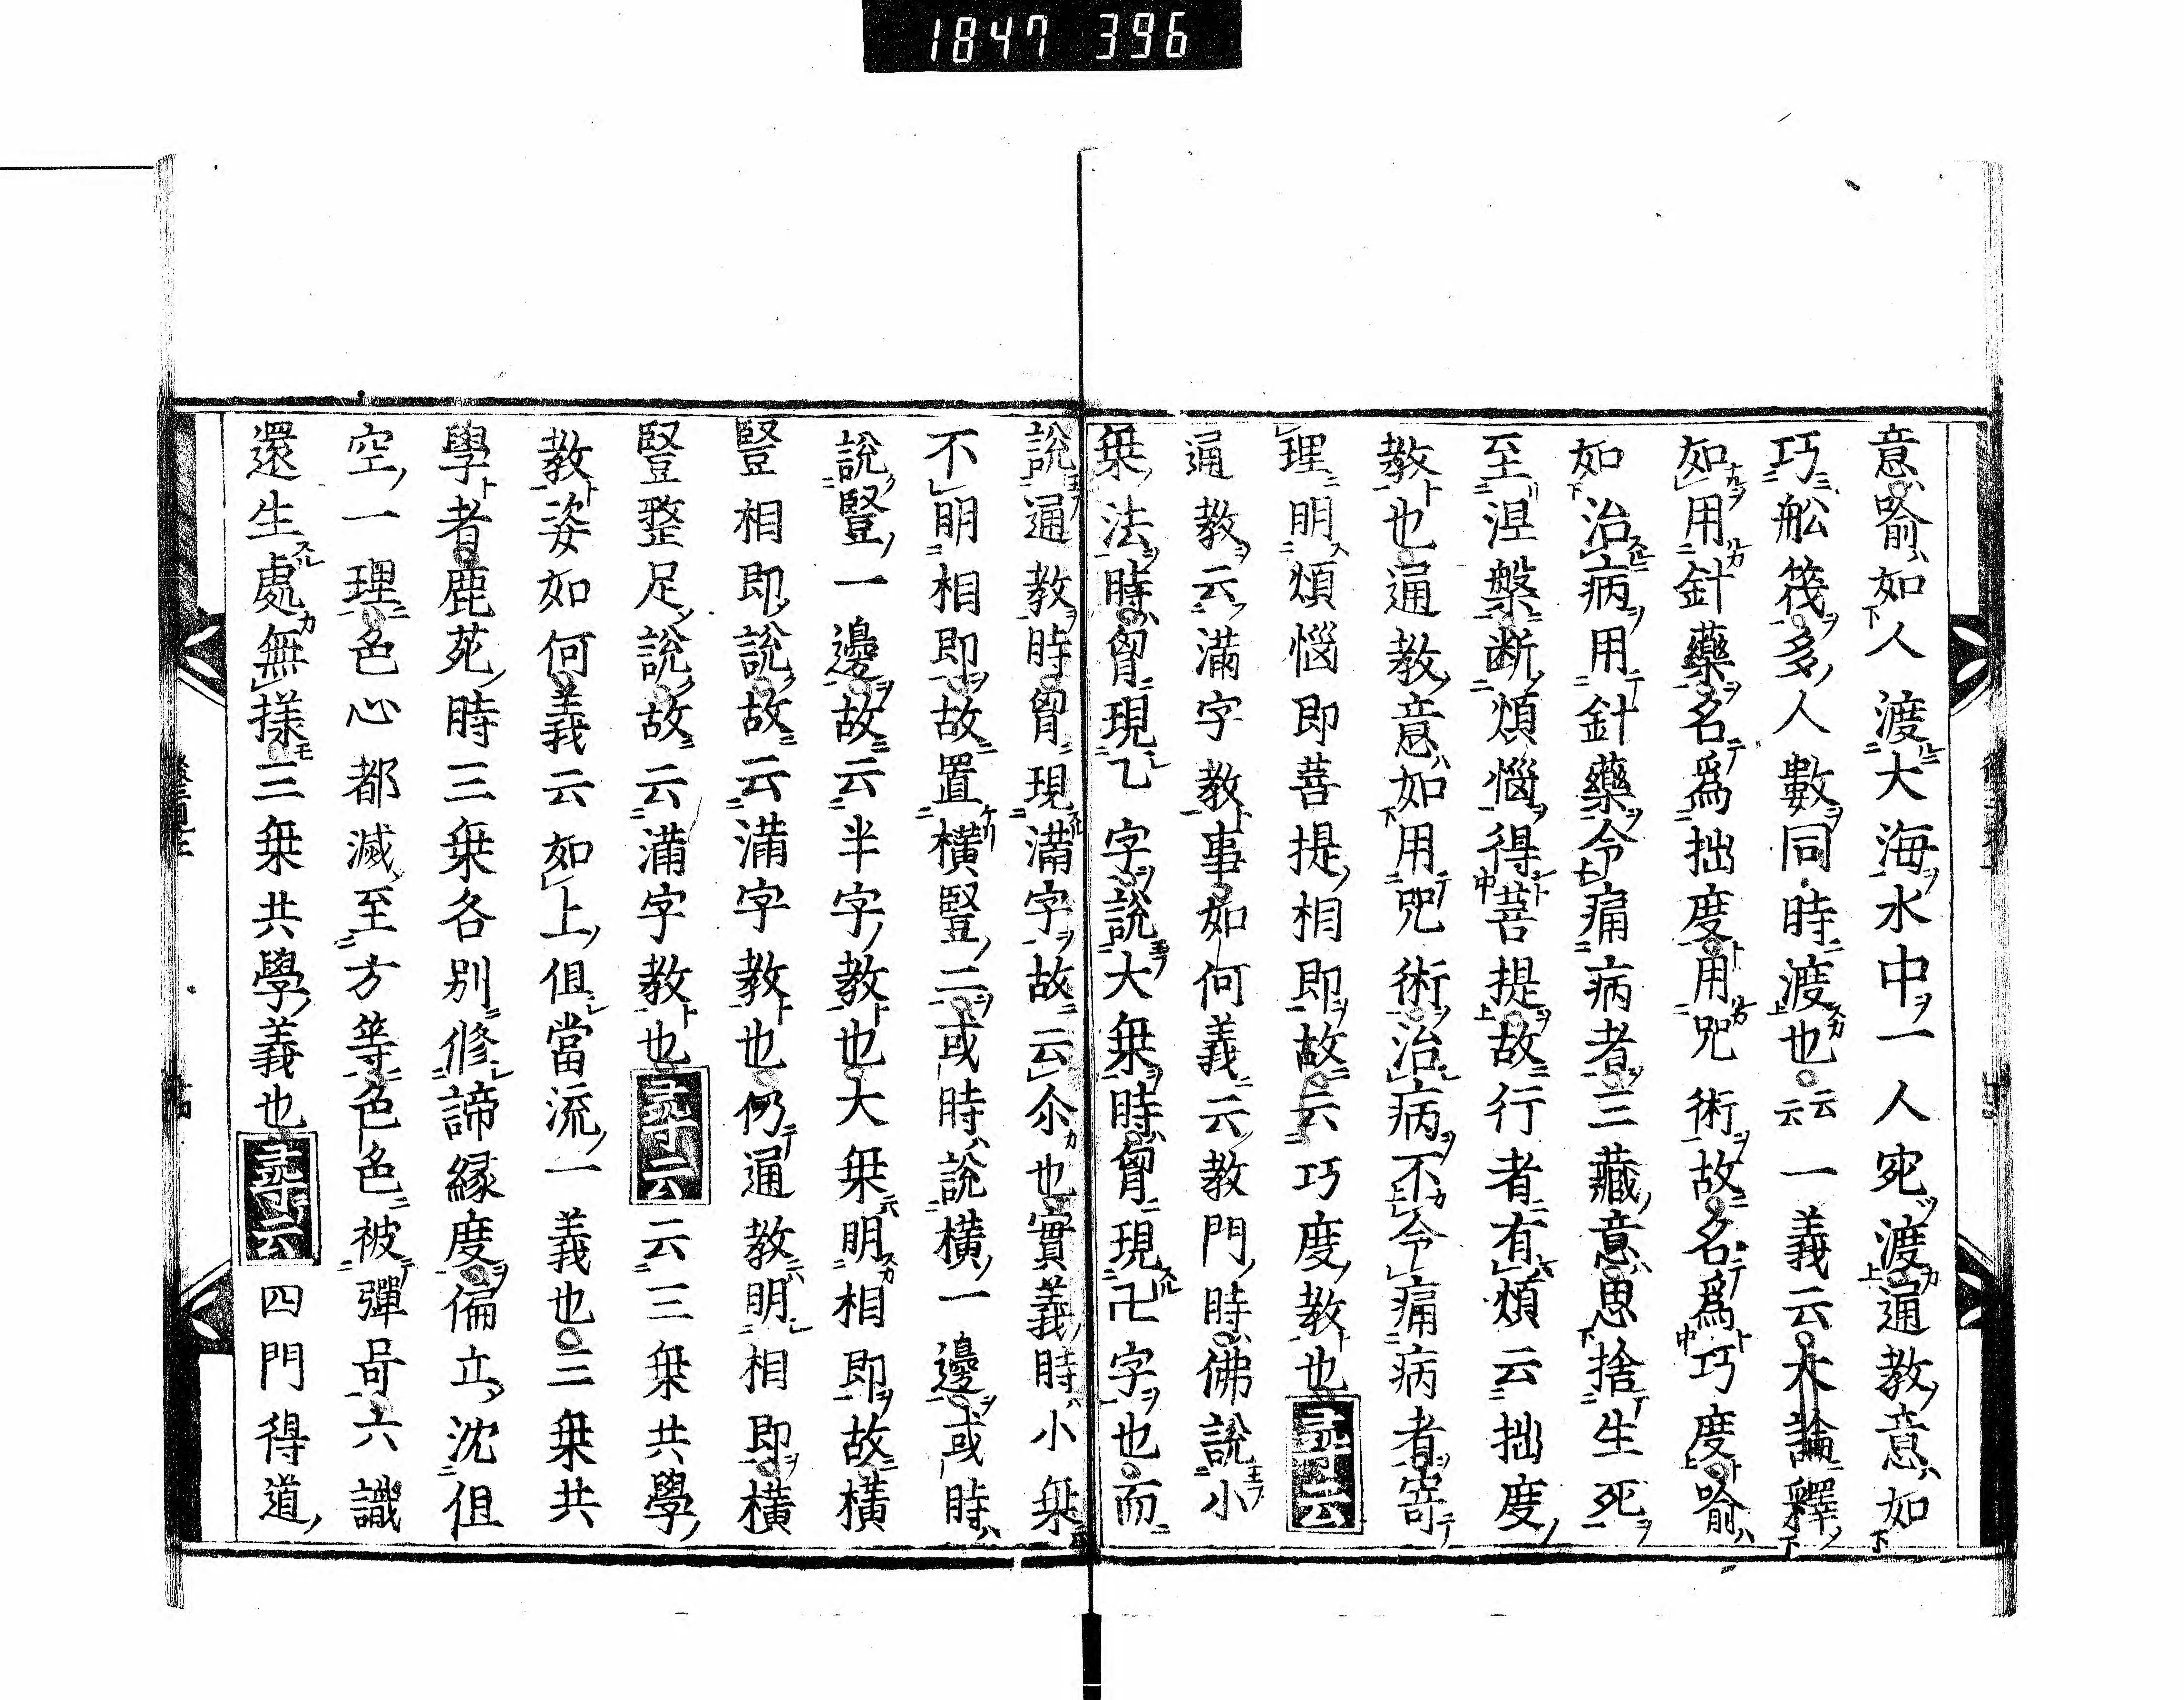 1847 396
意喩如人渡大海水中一人宛渡通教意如
巧舩筏多人數同時渡也云云一義云大論釋
如用針藥名爲拙度用咒術故名爲巧度喩
如治病用針藥令痛病者三藏意思捨生死
至涅槃断煩惱得菩提故行者有煩云拙度
教也通教意如用咒術治病不令痛病者寄
理明煩惱即菩提相即故云巧度教也尋云
通教云滿字教事如何義云教門時佛說小
乗法時胷現乙字說大乗時胷現卍字也而
說通教時胷現滿字故云尒也實義時小乗
不明相即故置橫豎二或時說橫一邊或時
說豎一邊故云半字教也大乗明相即故橫
豎相即說故云滿字教也仍通教明相即橫
豎整足說故云滿字教也尋云云三乗共學
教姿如何義云如上但當流一義也三乗共
學者鹿苑時三乗各别修諦緣度偏立沈但
空一理色心都滅至方等色色被彈呵六識
還生處無樣三乗共學義也尋云四門得道